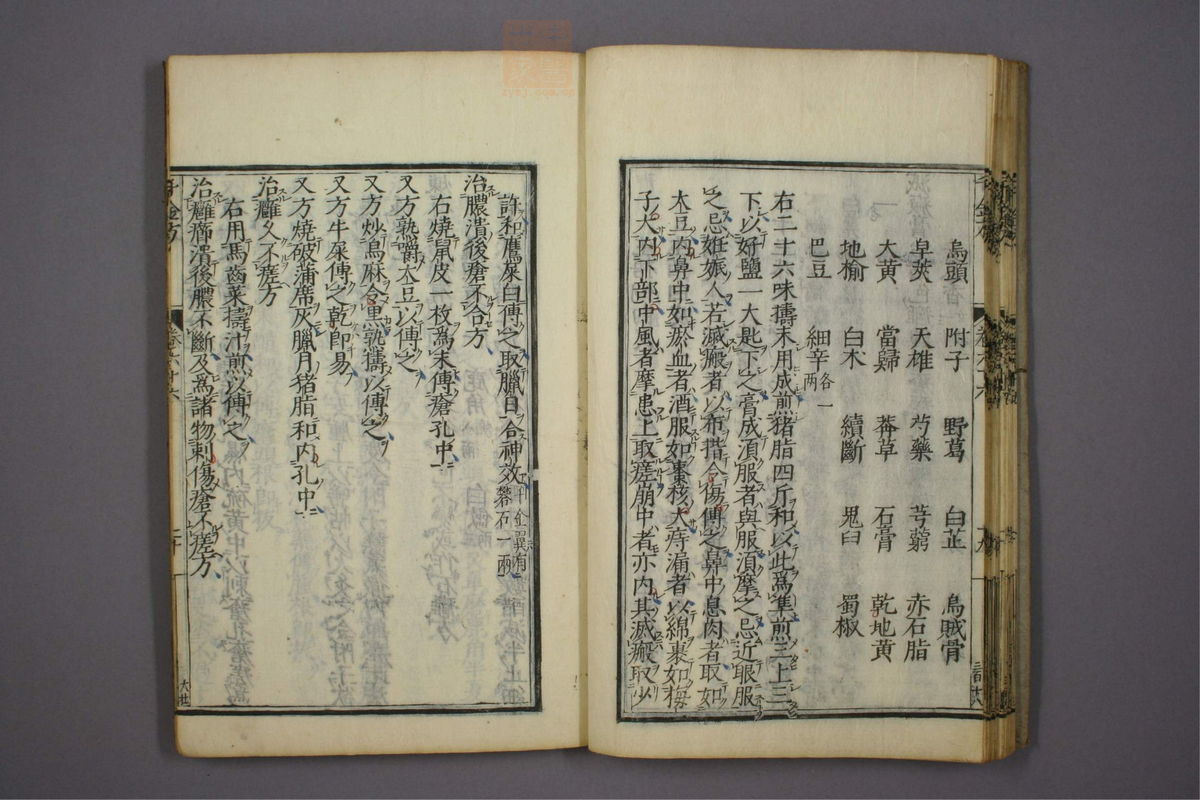 烏頭 附子 野葛 白芷 烏賊骨
皁莢 天雄 芍藥 芎藭 赤石脂
大黃 當歸 莽草 石膏 乾地黃
地榆 白朮 續斷 鬼臼 蜀椒
巴豆 細辛各一兩
右二十六味擣末用成煎豬脂四斤和以此為準煎三上三
下以好鹽一大匙下之膏成須服者與服須摩之忌近眼服
之忌妊娠人若滅瘢者以布揩令傷傅之鼻中息肉者取如
大豆內鼻中如瘀血者酒服如棗核大痔漏者以綿裹如梅
子大內下部中風者摩患上取瘥崩中者亦內其滅瘢取少
許和鷹屎白傅之取臘日合神效千金翼有礬石一兩
治膿潰後瘡不合方
右燒鼠皮一枚為末傅瘡孔中
又方熟嚼大豆以傅之
又方炒烏麻令黑熟擣以傅之
又方牛屎傅之乾即易
又方燒破蒲席灰臘月豬脂和內孔中
治癰久不瘥方
右用馬齒菜擣汁煎以傅之
治癰癤潰後膿不斷及為諸物刺傷瘡不瘥方
千金方